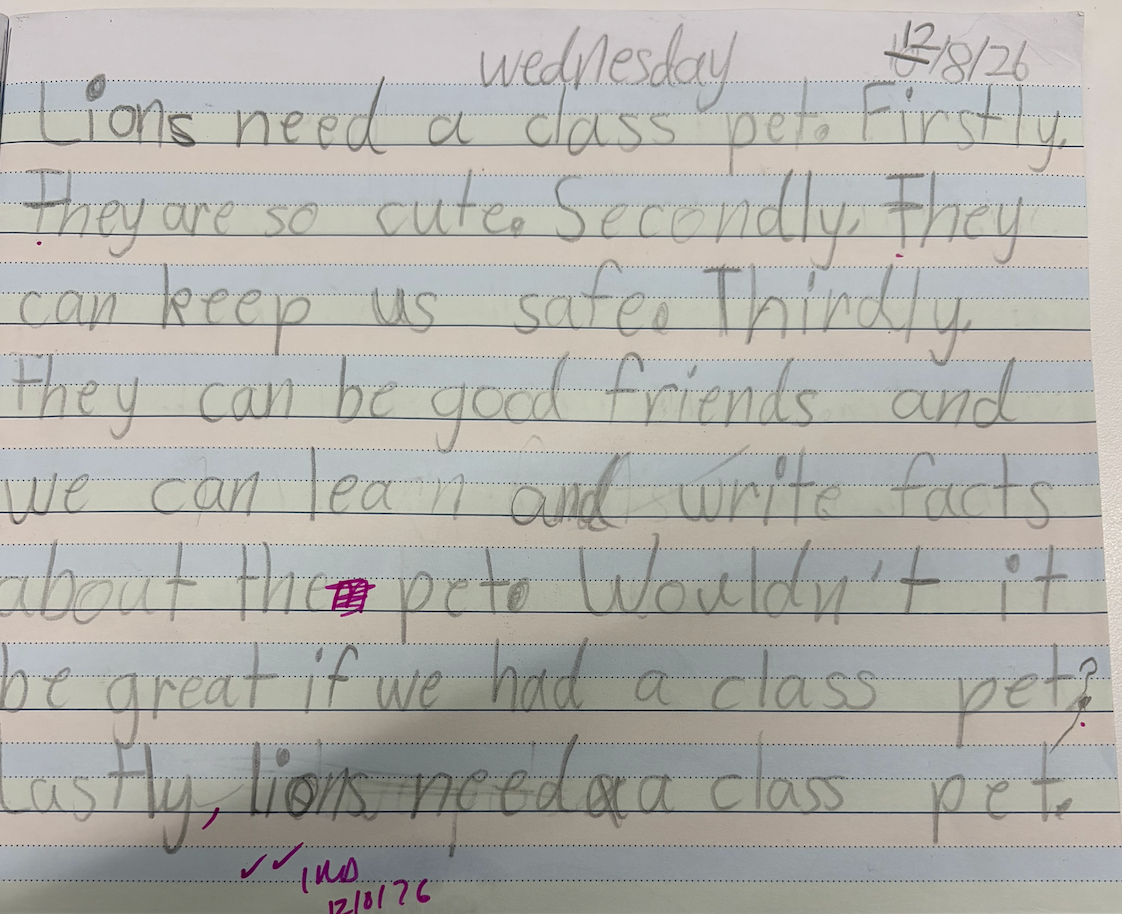 wednesday 12/8/26
Lions need a class pet. Firstly,
They are so cute. Secondly, They
can keep us safe. Thirdly,
they can be good friends and
we can lea n and write facts
about the pet. Wouldn't it
be great if we had a class pet?
Lastly, lions need a class pet.
✓✓ IND
12/8/26